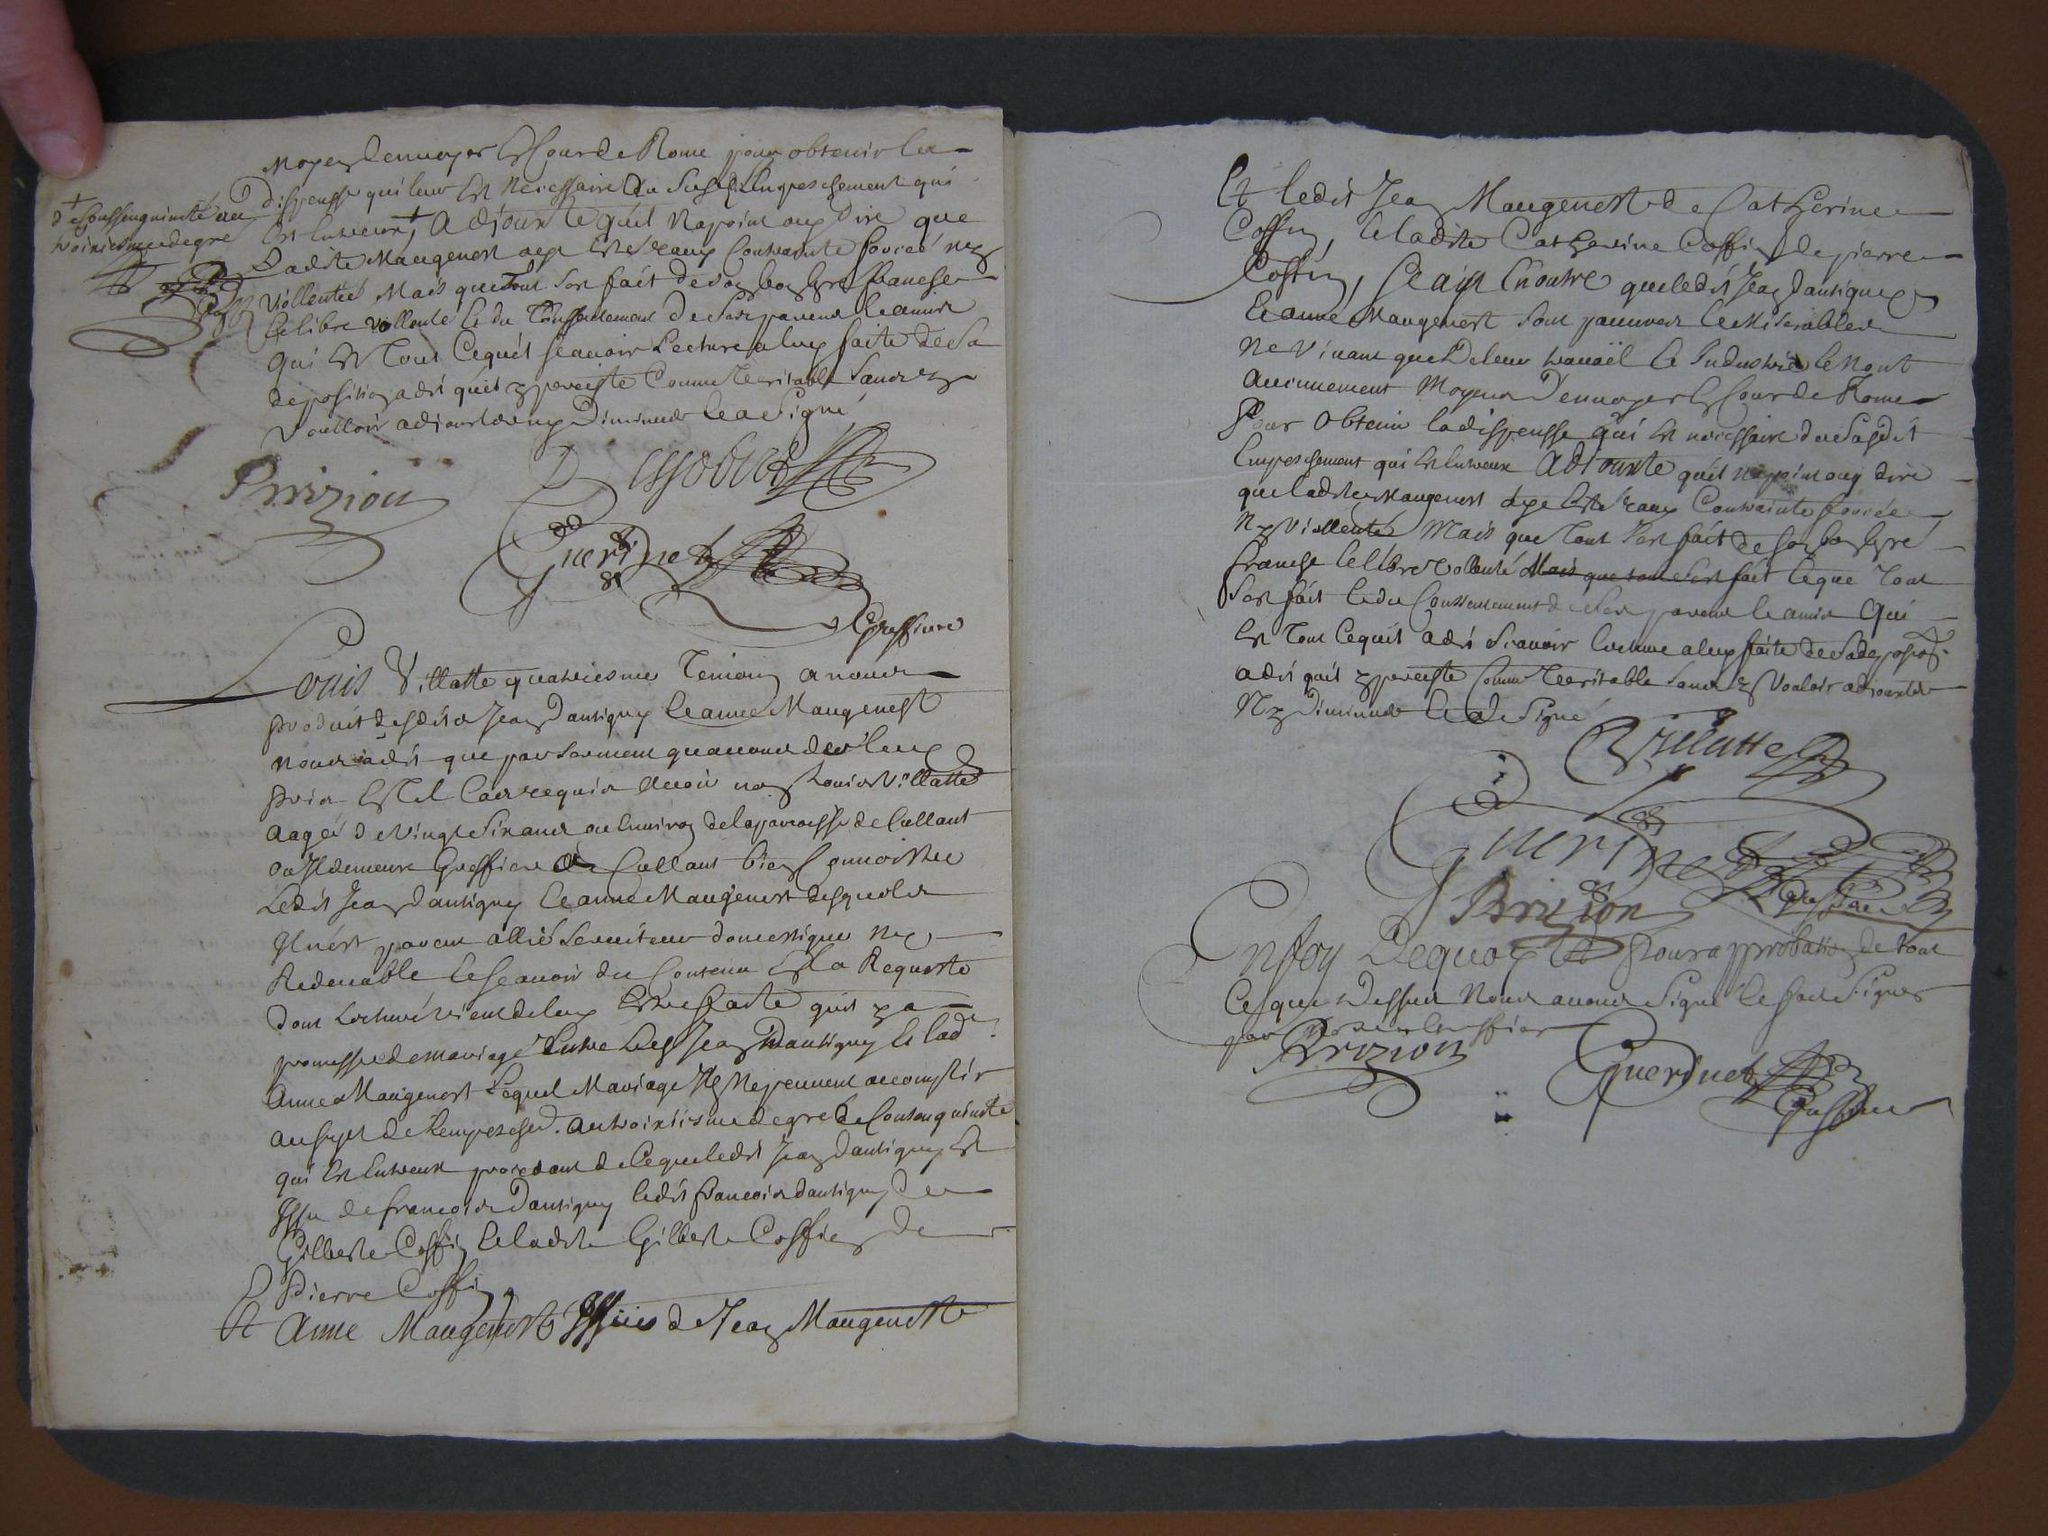 Moyens d'envoyer En Cour de Rome pour obtenir la
dispensse qui leur Est necessaire du Susd. Empeschement qui
Est Entreux + Adjouxte qu'il Na point ouy dire que
+ de Consenguinité au
troiziesme degré
Ladite Maugenest aye Esté Contrainte forcée ny
viollentée Mais que tout s'est fait de son bon gré franche
et libre vollonté et du Consentement de Ses parens et amis
qui Est Tout Ce qu'il sçavoir Lecture a luy faite de Sa
deposition a dit qu'il y perciste Comme Veritable Sans y
Voulloir adjourter ny Diminuer et a Signé
Brizion
Guerinet
Greffier
Louis Villatte quatriesme Temoin a nous
produit desdits Jean Dantigny et anne Maugenest
Nous a dit que par serment
pris Est Cas requis avoir nom Louis Villatte
aagé de Vingt Six ans ou Environ de la parroisse de Cullant
ou Il demeure Greffier de Cullant bien Connoistre
Ledit Jean Dantigny et anne Maugenest desquels
Il n'est parent allié Serviteur domestique ny
Redevable et sçavoir du Contenu En la Requeste
dont lecture vient de luy Estre faite qu'il y a
promesse de mariage Entre Led. Jean Dantigny et lad.
Anne Maugenest Lequel Mariage Ils Ne peuvent accomplir
au sujet de l'empesched. au troiziesme degré de Consenguinité
qui Est Entreux procedant de Ce que ledit Jean Dantigny Est
Issu de francois Dantigny ledit francois Dantigny de
Gilberte Coffin et ladite Gilberte Coffin de
Pierre Coffin
Et Anne Maugenest Issüe de Jean Maugenest
Et ledit Jean Maugenest de Catherine
Coffin, et ladite Catherine Coffin de pierre
Coffin, Sçait En outre que ledit Jean Dantigny
et anne Maugenest Sont pauvres et Miserables
Ne Vivant que De leur travail et Industrie et N'ont
aucunement Moyens D'envoyer En Cour de Rome
Pour Obtenir la dispensse qui Est necessaire du Susdit
Empeschement qui Est Entreux Adjouxte qu'il Na point ouy dire
que ladite Maugenest aye Esté Contrainte forcée
Ny Viollentée Mais que Tout s'est fait de son bon gré
franche et libre vollonté Mais que tout s'est fait et que Tout
s'est fait et du Consentement de Ses parens et amis Qui
Est Tout Ce qu'il a dit Sçavoir lecture a luy faite de Sa deposion
a dit qu'il y perciste Comme Veritable Sans y Vouloir adjourter
Ny Diminuer et a Signé
Villatte
Guerinet
Brizion
Greffier
En foy Dequoy Et Pour approbation de tout
Ce que Dessus Nous avons Signé et fait Signer
par Nostre Greffier
Brizion
Guerinet
Greffier